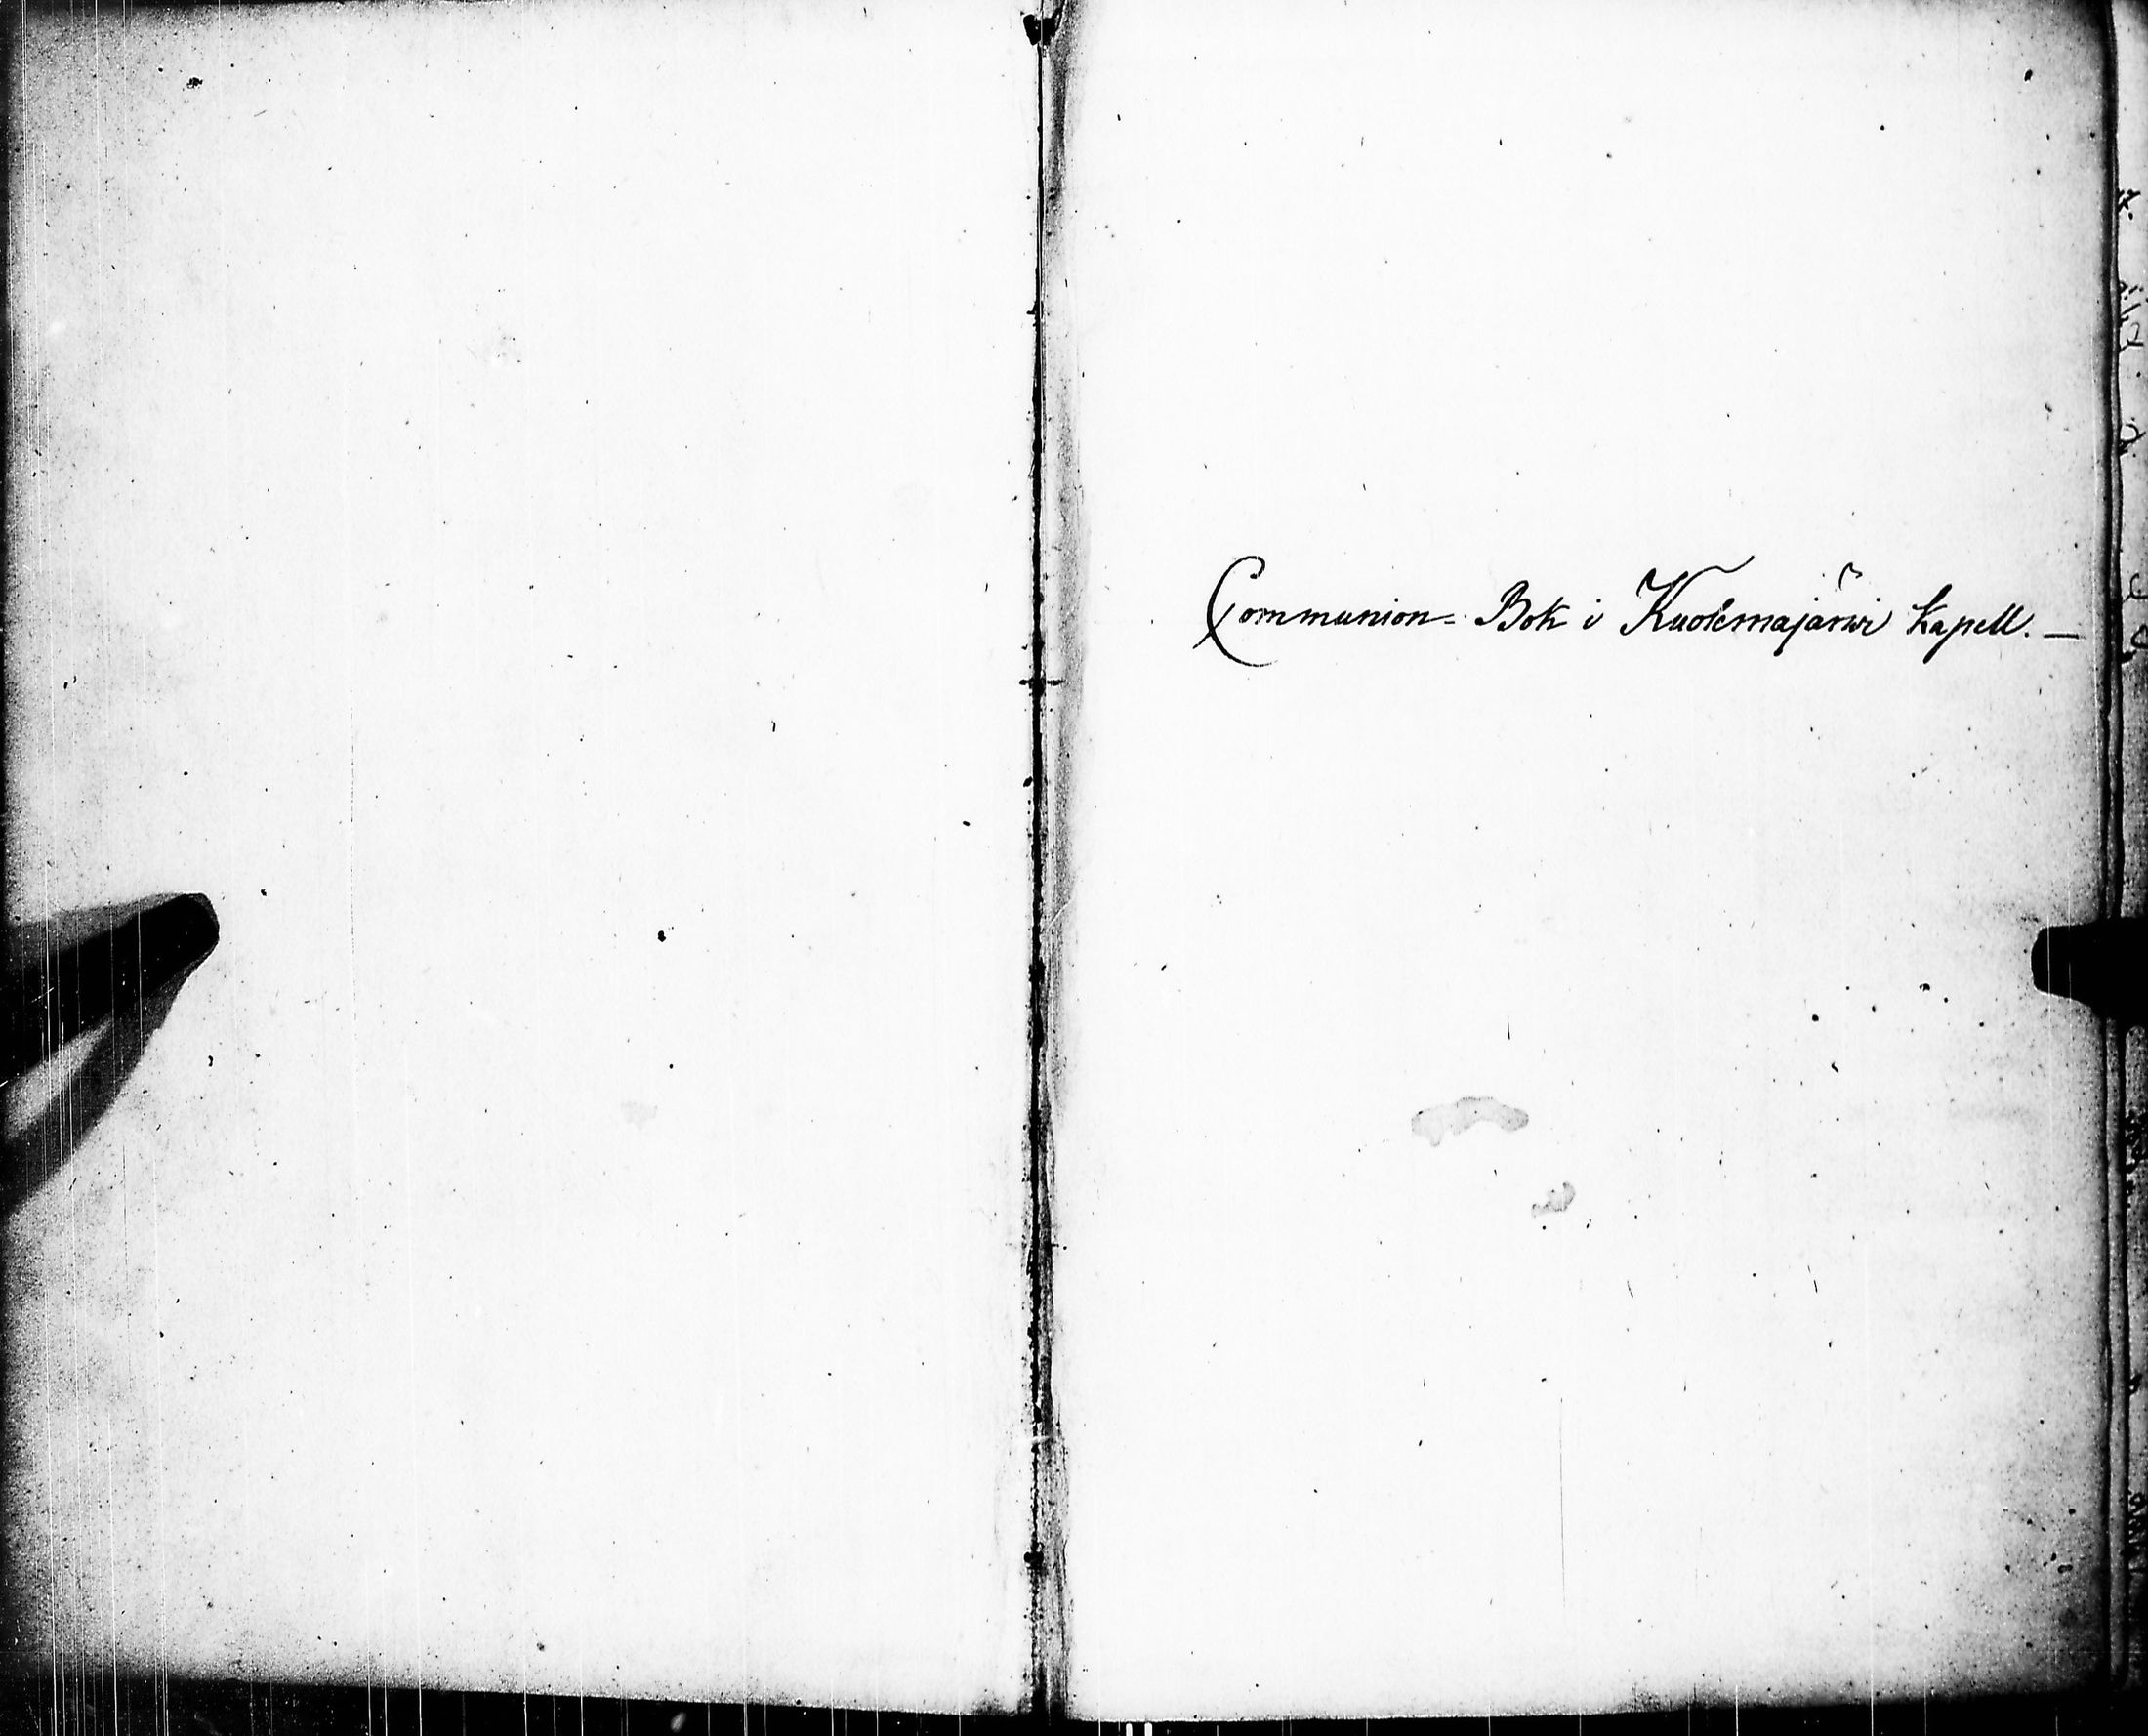 Communion= Bok i Kuolemajärwi kapell. —